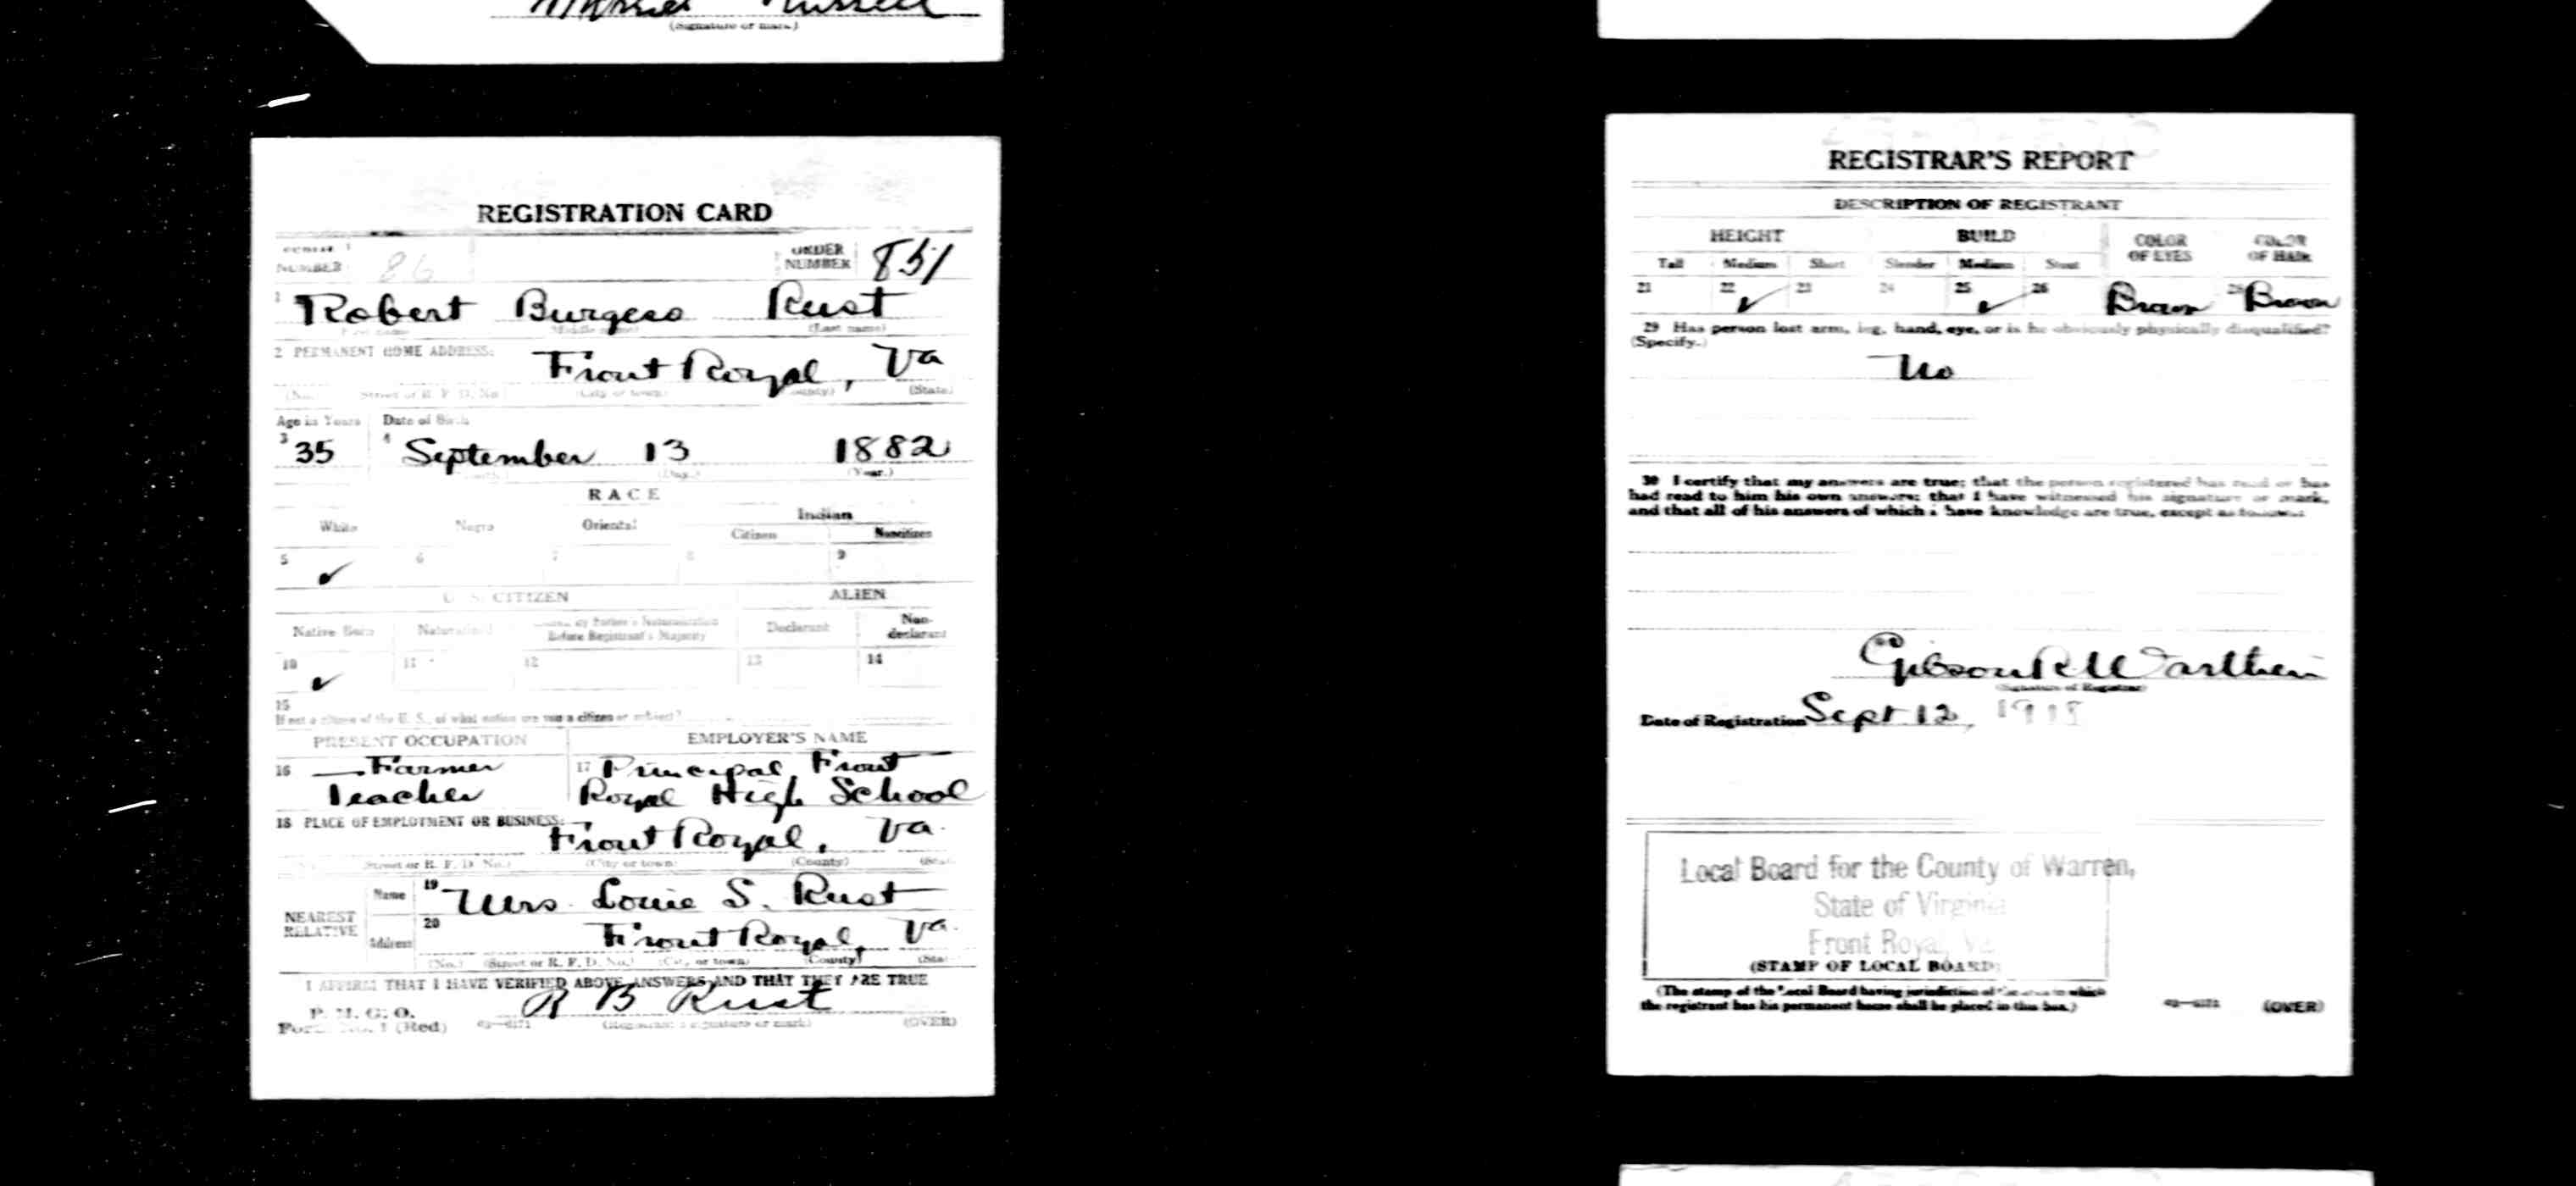 (Signature or mark)
REGISTRATION CARD
NUMBER 86
ORDER NUMBER 851
1 Robert Burgess Rust
(Last name)
2 PERMANENT HOME ADDRESS:
Front Royal, Va
(No.) (Street or R. F. D. No.) (City or town) (County) (State)
Age in Years Date of Birth
3 35 4 September 13 1882
(Day.) (Year.)
RACE
White Negro Oriental Indian
Citizen Noncitizen
5 ✓ 6 7 8 9
U. S. CITIZEN ALIEN
Native Born Naturalized Citizen by Father's Naturalization Before Registrant's Majority Declarant Non-declarant
10 ✓ 11 12 13 14
15
If not a citizen of the U. S., of what nation are you a citizen or subject?
PRESENT OCCUPATION EMPLOYER'S NAME
16 Farmer 17 Principal Front
Teacher Royal High School
18 PLACE OF EMPLOYMENT OR BUSINESS:
Front Royal, Va.
(Street or R. F. D. No.) (City or town) (County) (State)
NEAREST RELATIVE
Name 19 Mrs. Louie S. Rust
Address 20 Front Royal, Va.
(No.) (Street or R. F. D. No.) (City or town) (County) (State)
I AFFIRM THAT I HAVE VERIFIED ABOVE ANSWERS AND THAT THEY ARE TRUE
P. M. G. O.
Form No. 1 (Red)
R B Rust
(Registrant's signature or mark) (OVER)
REGISTRAR'S REPORT
DESCRIPTION OF REGISTRANT
HEIGHT BUILD COLOR OF EYES COLOR OF HAIR
Tall Medium Short Slender Medium Stout
21 22 ✓ 23 24 25 ✓ 26 Brown 28 Brown
29 Has person lost arm, leg, hand, eye, or is he obviously physically disqualified?
(Specify.)
No
30 I certify that my answers are true; that the person registered has read or has
had read to him his own answers; that I have witnessed his signature or mark,
and that all of his answers of which I have knowledge are true, except as follows:
Gibson R Warthen
(Signature of Registrar)
Date of Registration Sept 12, 1918
Local Board for the County of Warren,
State of Virginia
Front Royal, Va.
(STAMP OF LOCAL BOARD)
(The stamp of the Local Board having jurisdiction of the area in which
the registrant has his permanent home shall be placed in this box.)
(OVER)